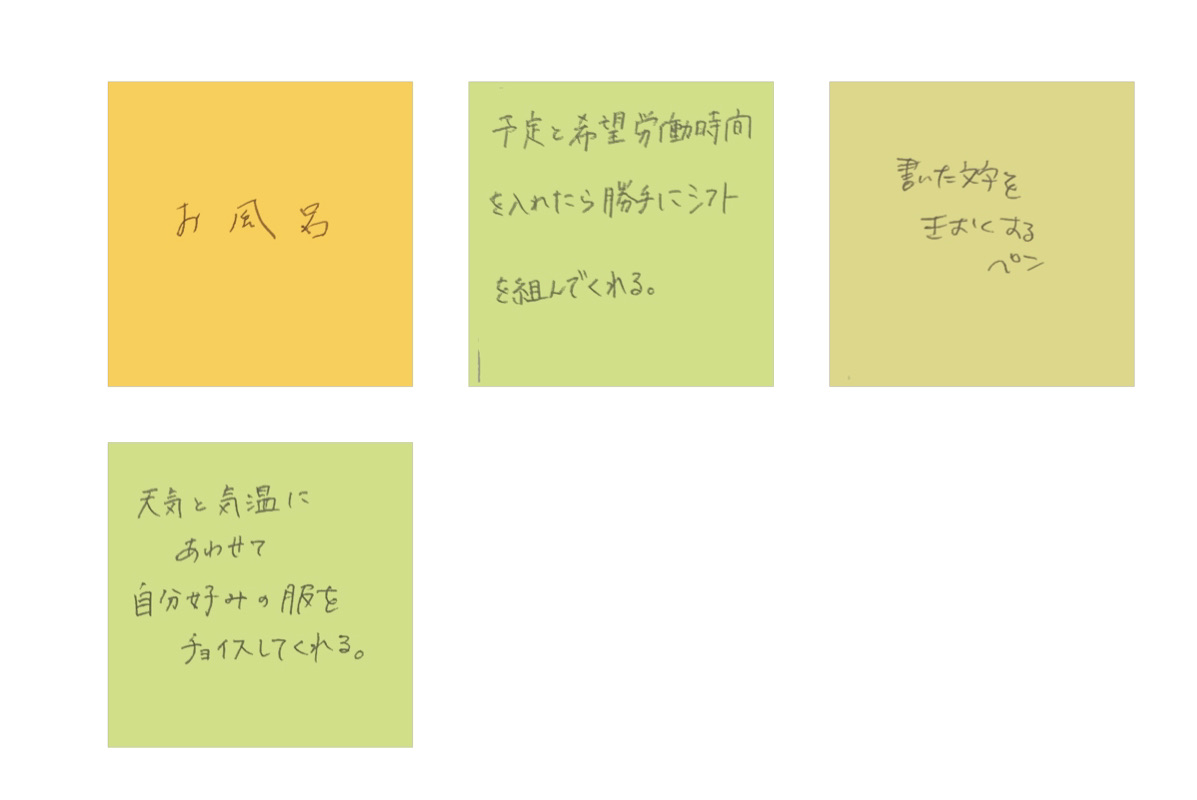 お風呂
予定と希望労働時間
を入れたら勝手にシフト
を組んでくれる。
書いた文字を
きおくする
ペン
天気と気温に
あわせて
自分好みの服を
チョイスしてくれる。